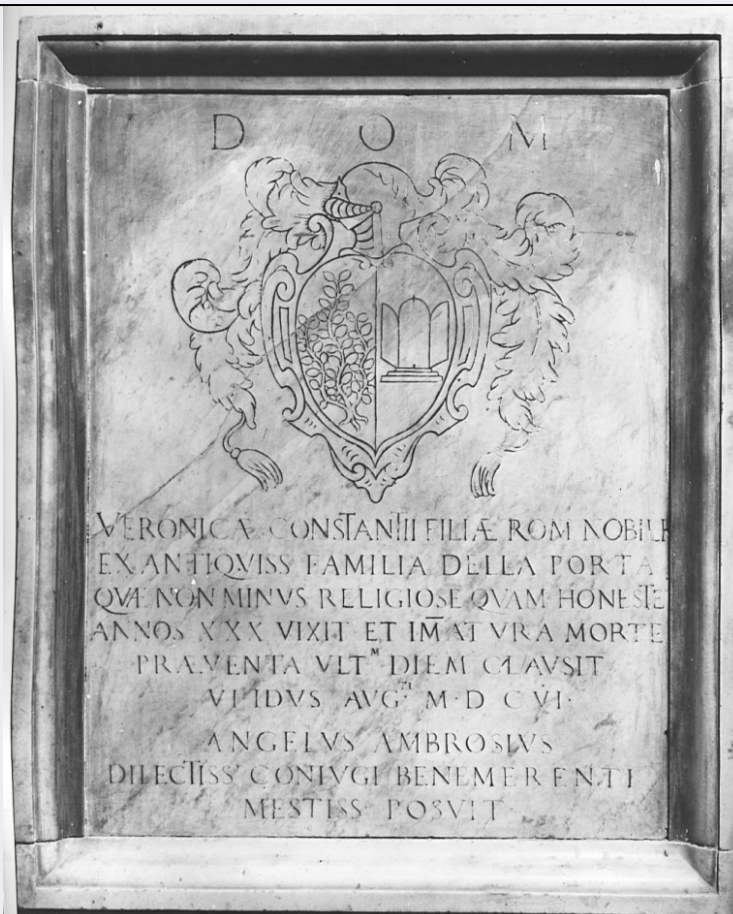 D O M
VERONICÆ CONSTANTII FILIÆ ROM NOBILI
EX ANTIQVISS FAMILIA DELLA PORTA
QVÆ NON MINVS RELIGIOSE QVAM HONESTE
ANNOS XXX VIXIT ET IM̅ATVRA MORTE
PRÆVENTA VLTᴹ DIEM CLAVSIT
VI IDVS AVGᵀᴵ M·D CVI·
ANGELVS AMBROSIVS
DILECTISS CONIVGI BENEMERENTI
MESTISS POSVIT